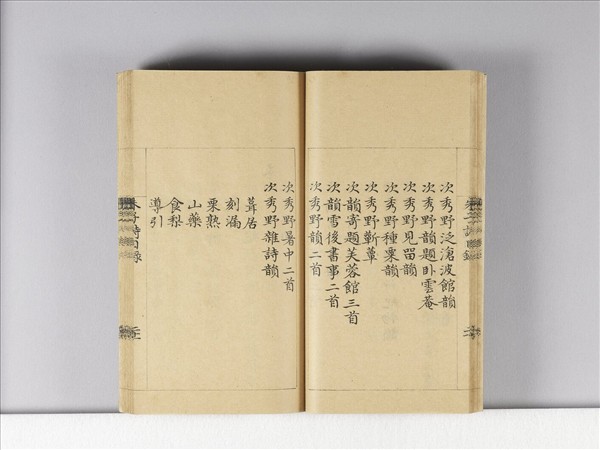 次秀野泛滄波館韻
次秀野韻題卧雲菴
次秀野見留韻
次秀野種栗韻
次秀野蔪蕈
次韻寄題芙蓉館三首
次韻雪後書事二首
次秀野韻二首
次秀野暑中二首
次秀野雜詩韻
葺居
刻漏
栗熟
山藥
食梨
導引